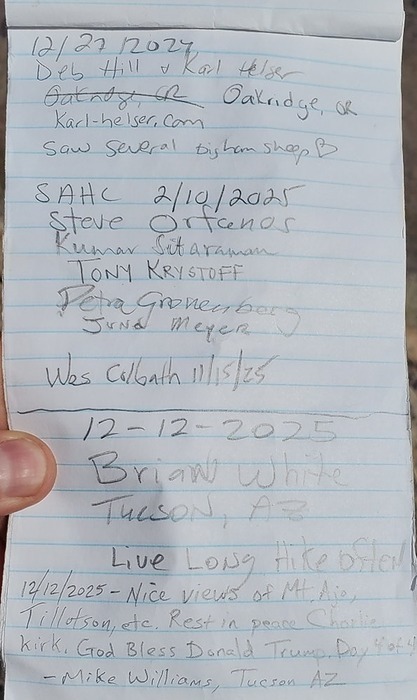 12/27/2024
Deb Hill & Karl Helser
Oakridge, OR Oakridge, OR
Karl-helser.com
Saw several bigham sheep
SAHC 2/10/2025
Steve Orfanos
Kumar Sitaraman
TONY KRYSTOFF
Petra Gronenberg
June Meyer
Wes Colbath 11/15/25
12-12-2025
Brian White
Tucson, AZ
Live Long Hike often
12/12/2025 - Nice views of Mt. Ajo,
Tillotson, etc. Rest in peace Charlie
Kirk. God Bless Donald Trump. Day 4 of 4
- Mike Williams, Tucson AZ